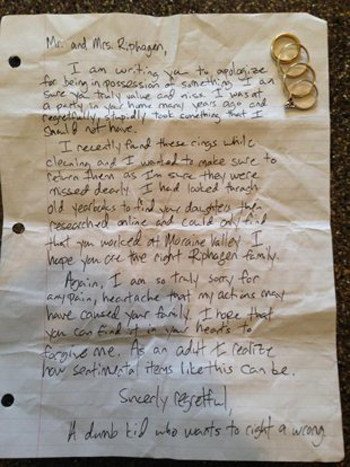 Mr. and Mrs. Riphagen,
I am writing you to apologize
for being in possession of something I am
sure you truly value and miss. I was at
a party in your home many years ago and
regretfully, stupidly took something that I
should not have.
I recently found these rings while
cleaning and I wanted to make sure to
return them as I'm sure they were
missed dearly. I had looked through
old yearbooks to find your daughters then
researched online and could only find
that you worked at Moraine Valley I
hope you are the right Riphagen family.
Again, I am so truly sorry for
any pain, heartache that my actions may
have caused your family. I hope that
you can find it in your hearts to
forgive me. As an adult I realize
how sentimental items like this can be.
Sincerly regretful,
A dumb kid who wants to right a wrong